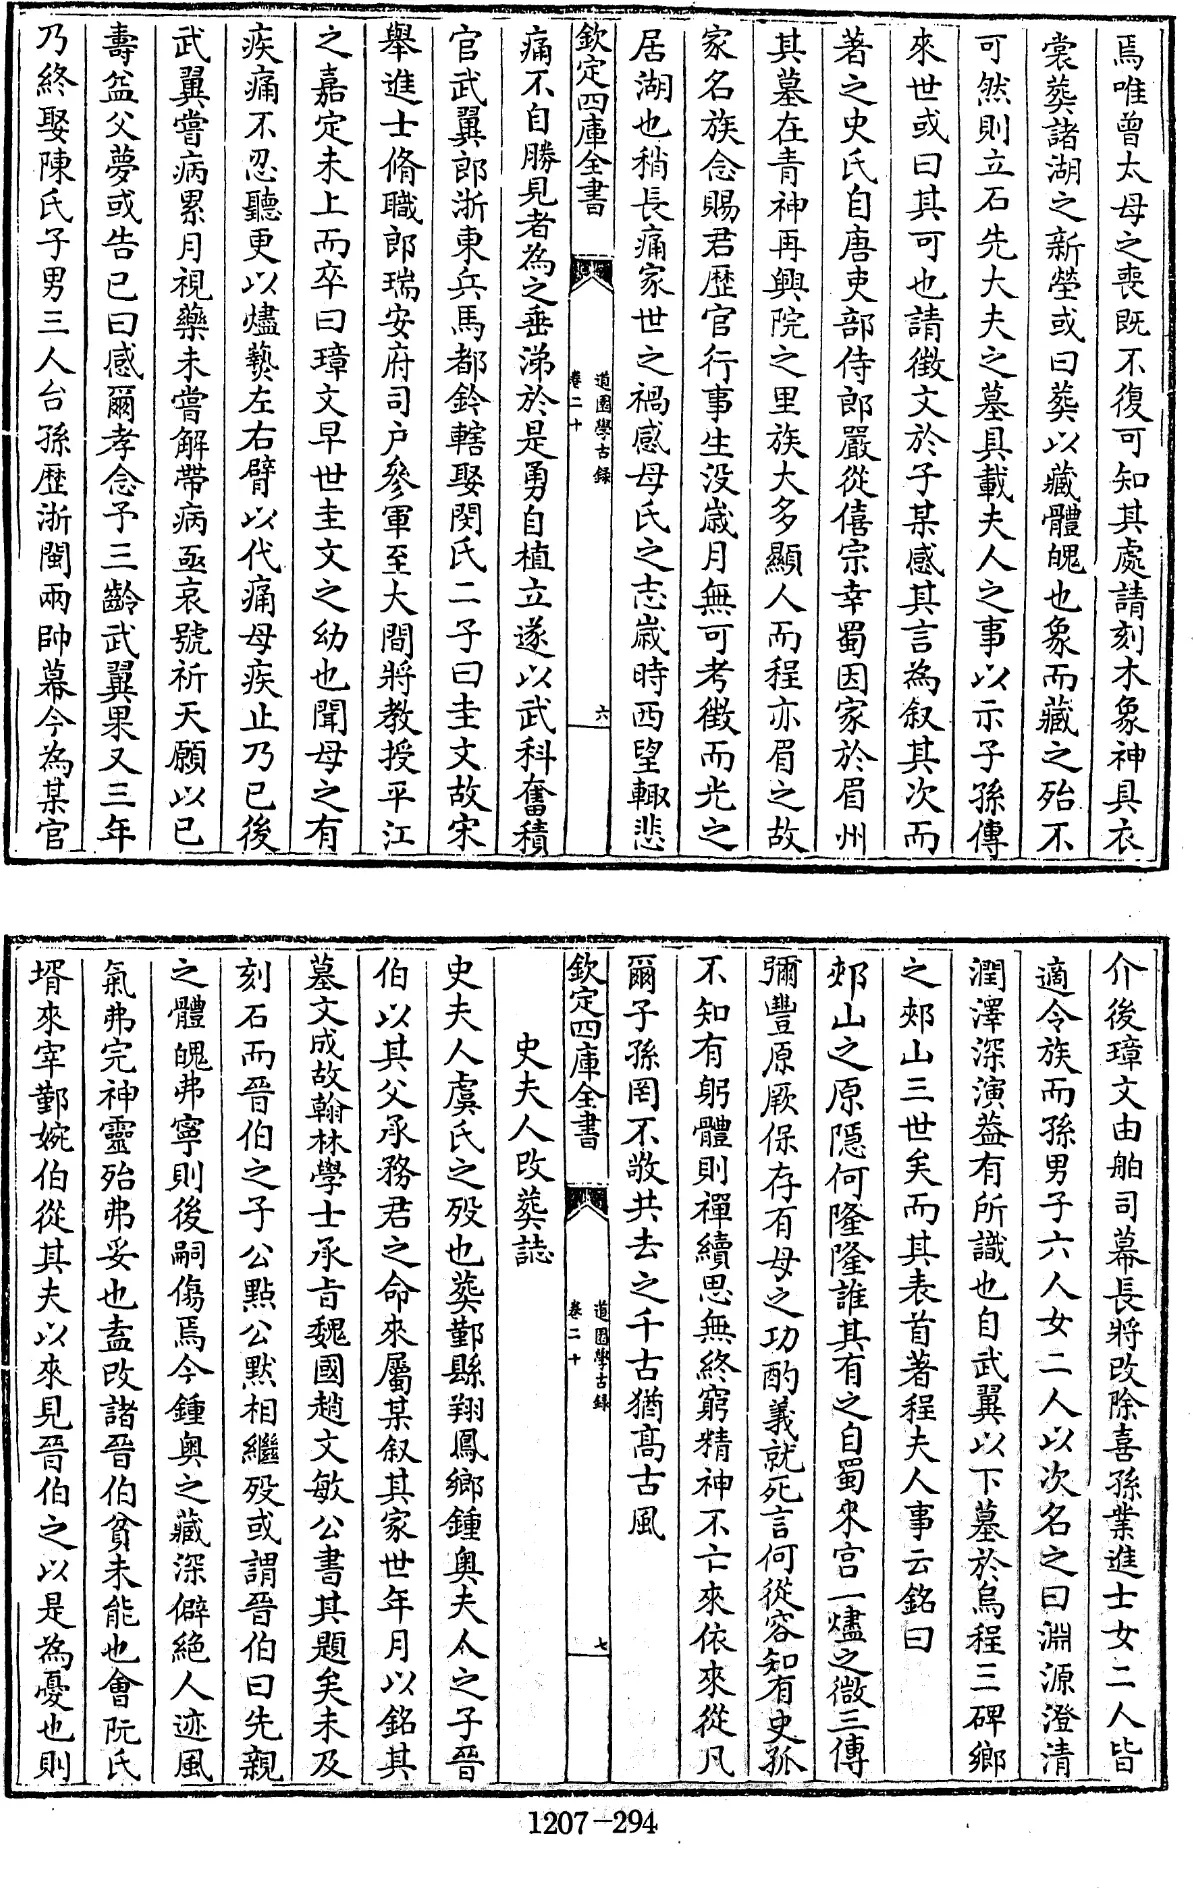 焉唯曾太母之喪既不復可知其處請刻木象神具衣
裳葬諸湖之新塋或曰葬以藏體魄也象而藏之殆不
可然則立石先大夫之墓具載夫人之事以示子孫傳
來世或曰其可也請徵文於子某感其言為叙其次而
著之史氏自唐吏部侍郎嚴從僖宗幸蜀因家於眉州
其墓在青神再興院之里族大多顯人而程亦眉之故
家名族念賜君歴官行事生没嵗月無可考徴而光之
居湖也稍長痛家世之禍感母氏之志嵗時西望輙悲
欽定四庫全書
道園學古録
卷二十
六
痛不自勝見者為之垂涕於是勇自植立遂以武科奮積
官武翼郎浙東兵馬都鈐轄娶閔氏二子曰圭文故宋
舉進士脩職郎瑞安府司户參軍至大間將教授平江
之嘉定未上而卒曰璋文早世圭文之幼也聞母之有
疾痛不忍聽更以燼爇左右臂以代痛母疾止乃已後
武翼嘗病累月視藥未嘗解帶病亟哀號祈天願以已
壽益父夢或告已曰感爾孝念予三齡武翼果又三年
乃終娶陳氏子男三人台孫歴浙閩兩帥幕今為某官
介後璋文由舶司幕長將改除喜孫業進士女二人皆
適令族而孫男子六人女二人以次名之曰淵源澄清
潤澤深演葢有所識也自武翼以下墓於烏程三碑鄉
之郟山三世矣而其表首著程夫人事云銘曰
郟山之原隱何隆隆誰其有之自蜀來宫一燼之微三傳
彌豐原厥保存有母之功酌義就死言何從容知有史孤
不知有躬體則禪續思無終窮精神不亡來依來從凡
爾子孫罔不敬共去之千古猶高古風
欽定四庫全書
道園學古録
卷二十
七
史夫人改葬誌
史夫人虞氏之殁也葬鄞縣翔鳳鄉鍾奥夫人之子晉
伯以其父承務君之命來屬某叙其家世年月以銘其
墓文成故翰林學士承旨魏國趙文敏公書其題矣未及
刻石而晉伯之子公點公默相繼殁或謂晉伯曰先親
之體魄弗寧則後嗣傷焉今鍾奥之藏深僻絶人迹風
氣弗完神靈殆弗妥也盍改諸晉伯貧未能也會阮氏
壻來宰鄞婉伯從其夫以來見晉伯之以是為憂也則
1207-294